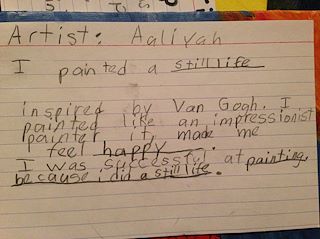 Artist: Aaliyah
I painted a still life
inspired by Van Gogh. I
painted like an impressionist
painter it made me
feel happy.
I was successful at painting.
because i did a still life.